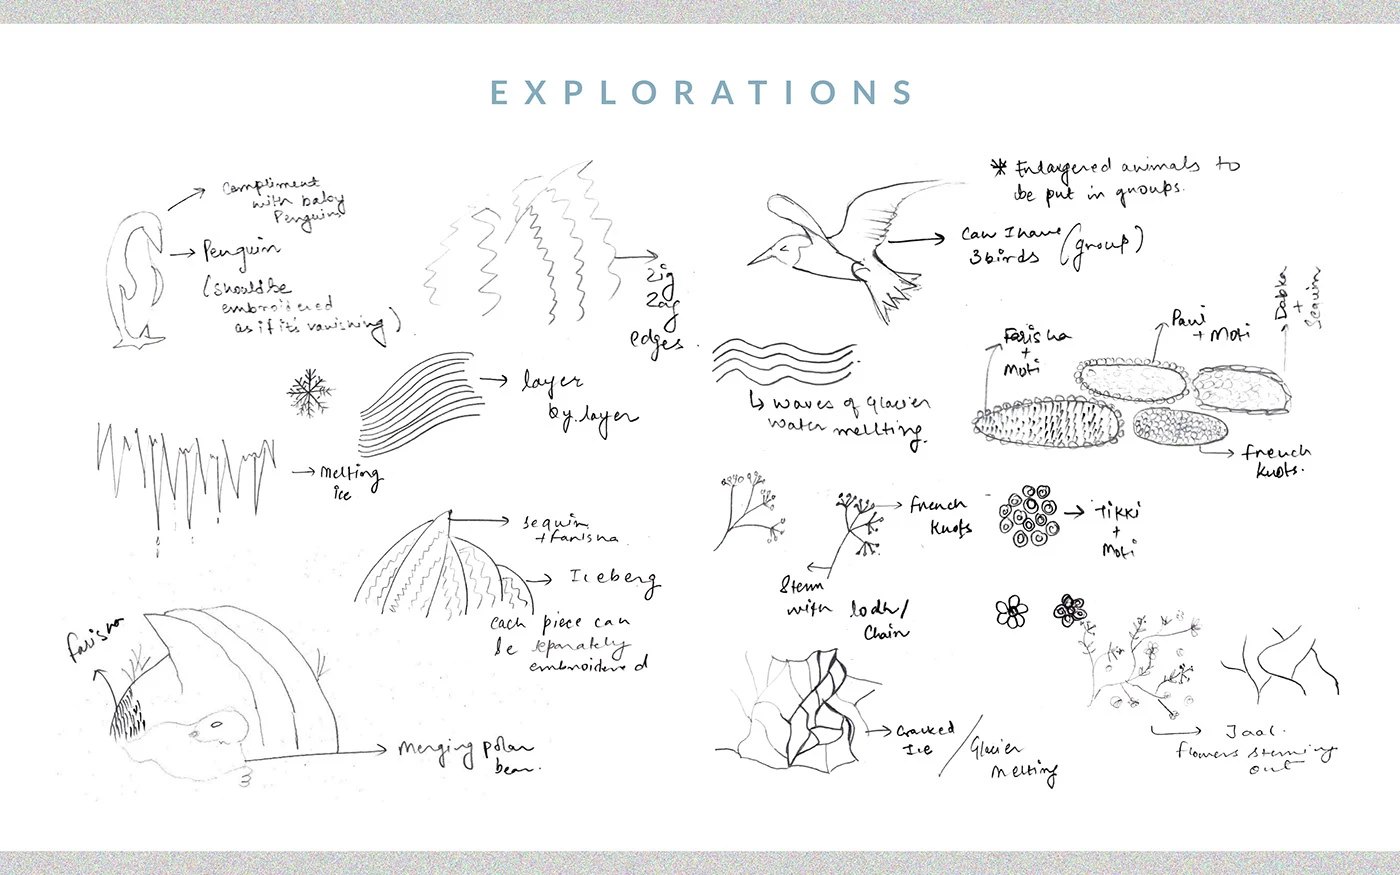 EXPLORATIONS
Compliment
with baby
Penguins
Penguin
(should be
embroidered
as if it's vanishing)
Zig
Zag
edges.
layer
by layer
melting
ice
sequin
+ farisha
Iceberg
each piece can
be separately
embroidered
farisha
merging polar
bear.
* Endangered animals to
be put in groups.
Can I have
3 birds (group)
Farisha
+
Moti
Pani
+ Moti
Dabka
+
Sequin
french
knots.
↳ waves of glacier
water mellting.
french
knots
Stem
with lodh/
Chain
Tikki
+
Moti
Cracked
Ice / Glacier
melting
Jaal.
flowers steming
out